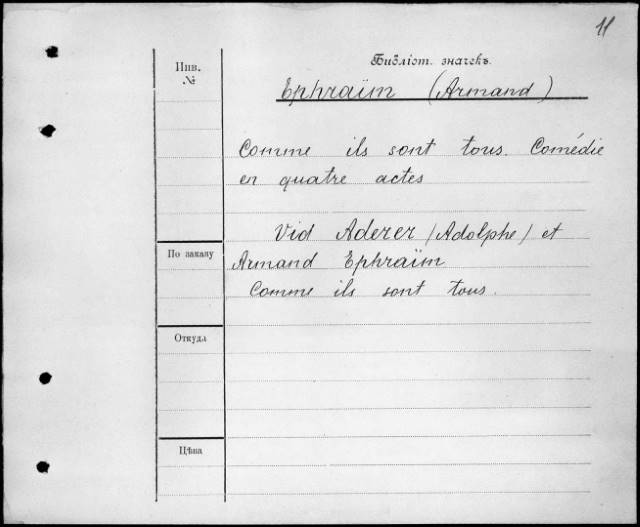 11
Библіот. значекъ.
Инв.
№
Ephraïm (Armand)
Comme ils sont tous. Comédie
en quatre actes
Vid Aderer /Adolphe/ et
Armand Ephraïm
Comme ils sont tous.
По заказу
Откуда
Цѣна